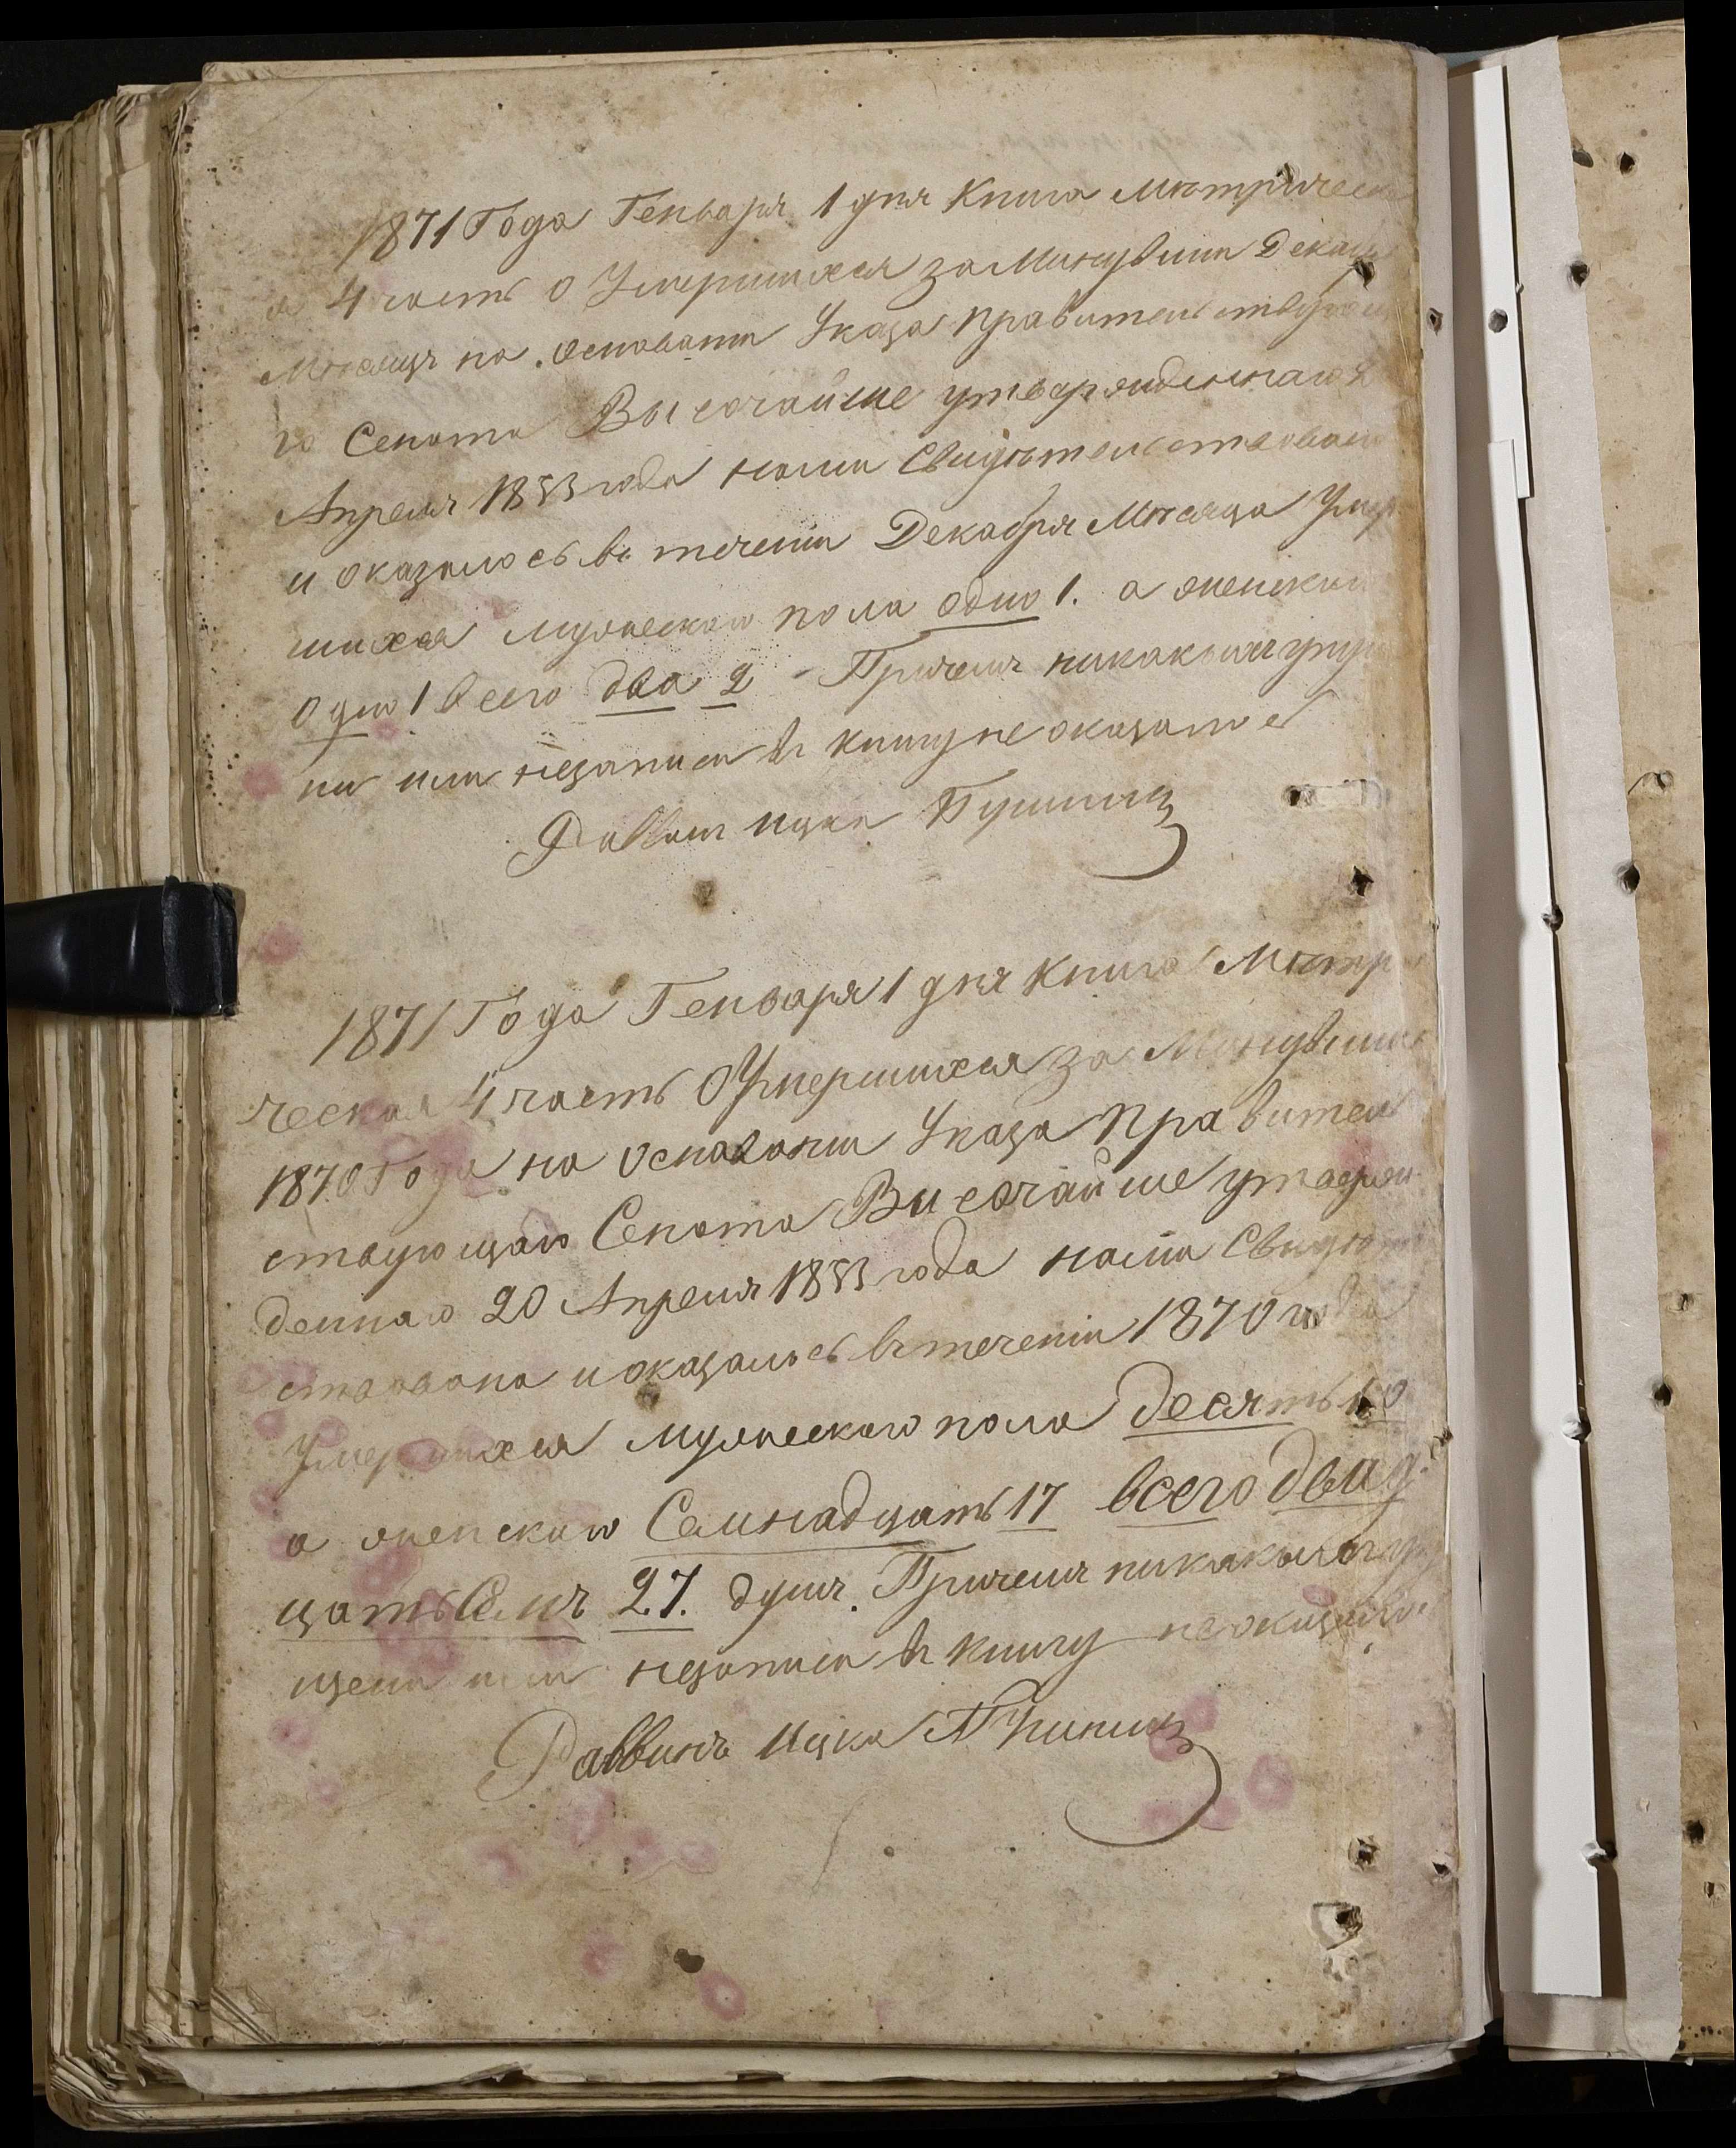 1871 Года Генваря 1 дня Книга Метрическ
я 4 часть о Умершихся за Минувшии Декабр
Месяцъ на основании Указа Правительствующ
го Сената Высочайше утвержденнаго 2
Апреля 1833 года нами Свидѣтельствована
и оказалось въ течении Декабря Месяца Умер
шихся мужескаго пола одно 1. а женскаго
одно 1 всего два 2 Причемъ никакихъ упуще
ни или незаписи въ книгу не оказалось
Раввин Ицка
1871 Года Генваря 1 дня Книга Метри
ческая 4 часть О Умершихся за Минувшии
1870 Года на Основании Указа Правитель
ствующаго Сената Высочайше утверж
деннаго 20 Апреля 1833 года нами Свидѣт
ствована и оказалось въ течении 1870 года
Умершихся Мужескаго пола десять 10
а женскаго Семнадцать 17 всего двад
цать Семъ 27. душъ. Причемъ никакихъ упу
щени или незаписи въ книгу не оказалось
Раввинъ Ицка